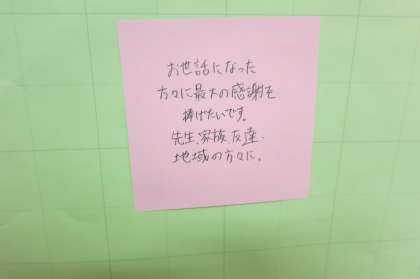 お世話になった
方々に最大の感謝を
捧げたいです。
先生、家族、友達、
地域の方々に。